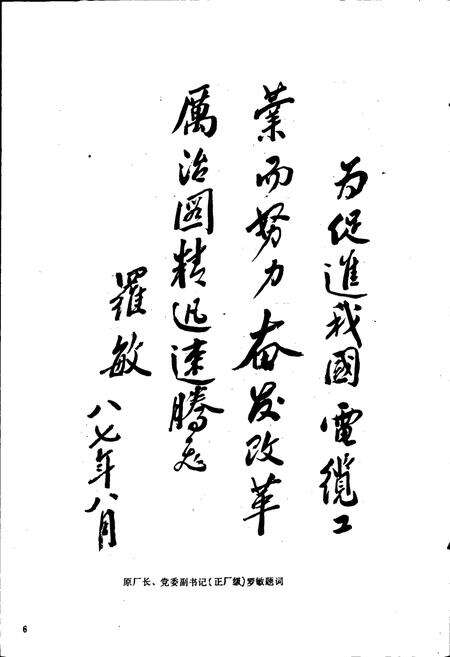 为促進我國電纜工
業而努力奋发改革
厲治圖精迅速騰飞
羅敏
八七年八月
原厂长、党委副书记(正厂级)罗敏题词
6